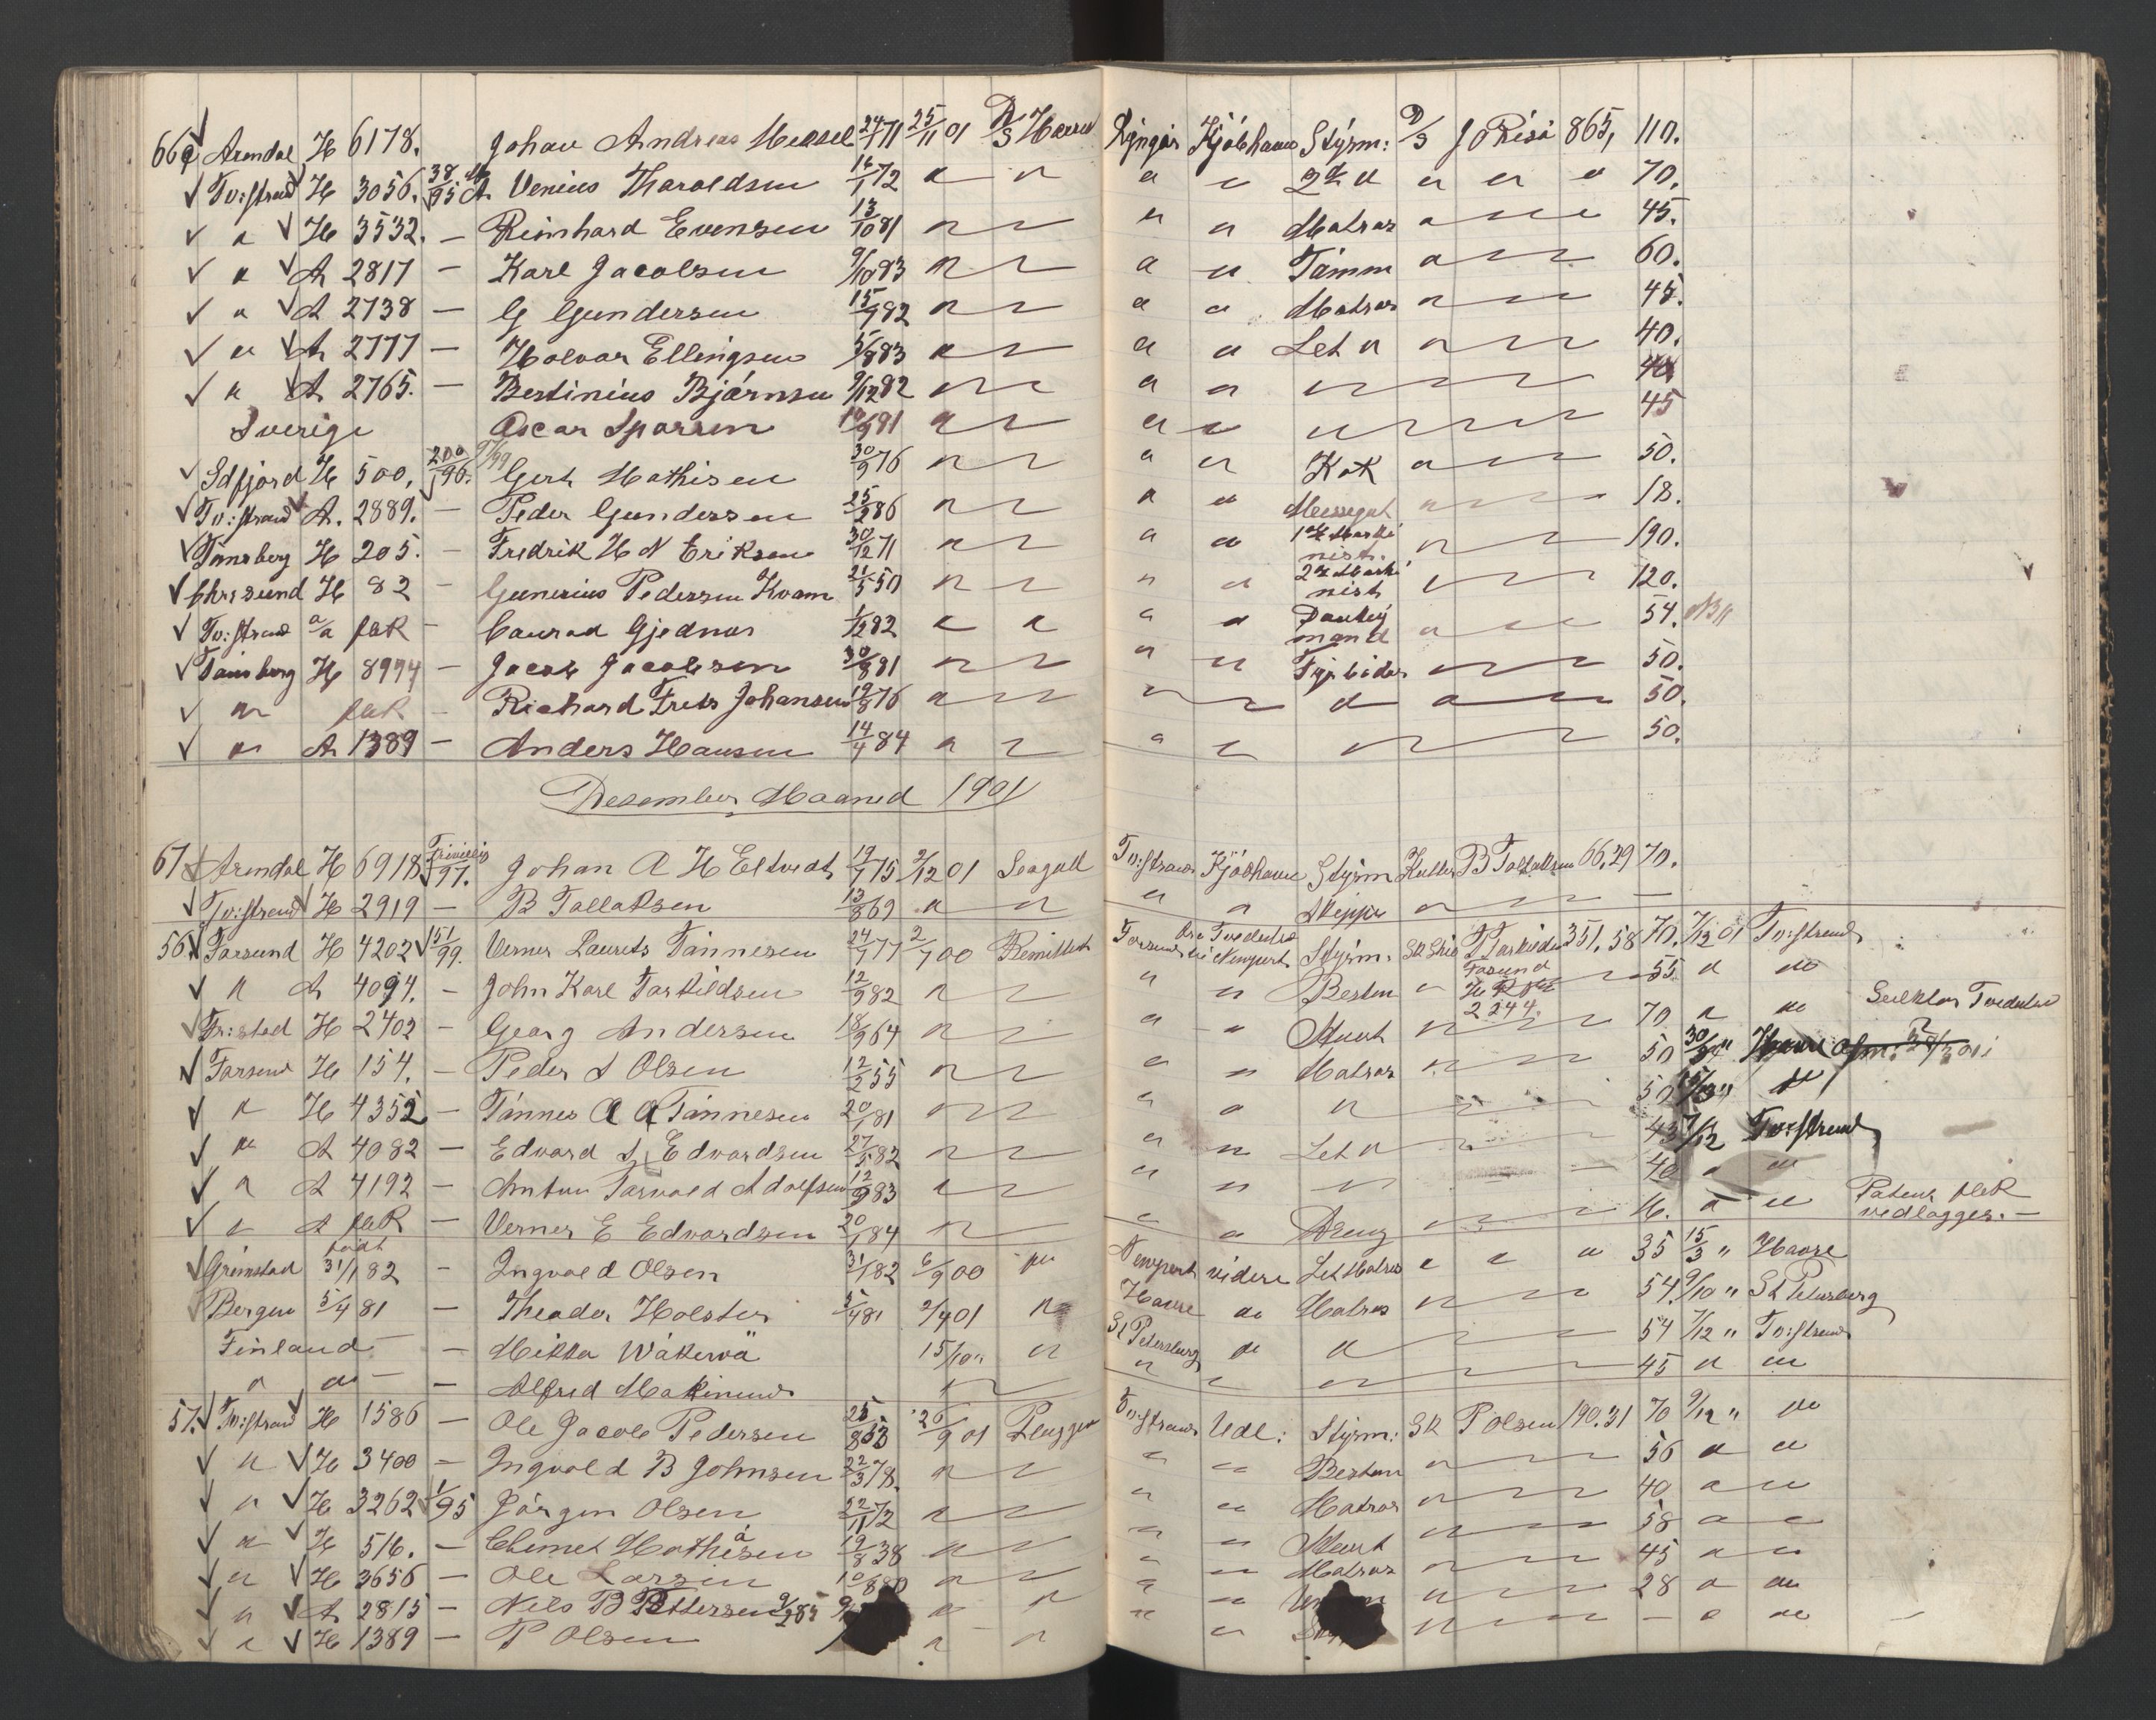 66 Arendal H 6178. Johan Andreas Hessel 24/7 71 25/11 01 D/S Lyngør Kjöbhavn Styrm: D/S J O Risö 865, 110.
Tv:strand H 3056. 38/95 A Venius Haroldsen 16/1 72 " " " " 2den " " " " 70.
" H 3532. — Reinhard Evensen 13/10 81 " " " " Matros " " 45.
" A 2817 — Karl Jacobsen 9/10 83 " " " " Tømm " " 60.
" A 2738 — G Gundersen 15/9 82 " " " " Matros " " 45.
" A 2777 — Halvor Ellingsen 5/8 83 " " " " Let " " " 40.
" A 2765. — Bertinius Bjørnsen 9/12 82 " " " " " " 40
Sverige Oscar Sparren 81 " " " " " " 45
Sdfjord H 500. 200/96. Gert Mathisen 30/9 76 " " " " Kok " " 50.
Tv:strand A. 2889. — Peder Gundersen 25/2 86 " " " " Messegut " " 18.
Tønsberg H 205. — Fredrik H N Eriksen 30/12 71 " " " " 1ste Maskinist. " " 190.
Chrsund H 82 — Gunerius Pedersen Kvam 21/5 50 " " " " 2den Maskinist " " 120.
Tv:strand a/a pak — Conrad Gjednes 1/12 82 " " " " Donkeymand " " 54.
Tønsberg H 8994 — Jacob Jacobsen 30/8 81 " " " " Fyrbøder " " 50.
" pak — Richard Frets Johansen 19/8 76 " " " " " " 50.
" A 1389 — Anders Hansen 14/4 84 " " " " " " 50.
Desember Maaned 1901
67 Arendal H 6918 Frivillig 97. Johan A H Eltvedt 19/7 75 2/12 01 Seagull Tv:strand Kjöbhavn Styrm Kutter B Tallaksen 66,29 70.
Tv:strand H 2919 — B Tallaksen 13/8 69 " " " " Skipper " " —
56. Farsund H 4202 151/99. Verner Laurets Tønnesen 24/1 77 2/7 00 Remittent Farsund Newport Styrm. Sk T Tarkildsen 351,58 70. 7/12 01 Tv:strand
" A 4094. — John Karl Tarkildsen 12/9 82 " " " " Bestm " Farsund 2244. 55 " "
Fr:stad H 2402 — Georg Andersen 18/9 64 " " " " Stuert " " 70 " "
Farsund H 154. — Peder S Olsen 12/2 55 " " " " Matros " " 50 Havre
" H 4352 — Tønnes A A Tønnesen 20/1 81 " " " " " " 50 "
" A 4082 — Edvard S Edvardsen 27/5 82 " " " " Let " " " 45 7/12 Tv:strand
" A 4192 — Anton Tarvald Adolfsen 12/9 83 " " " " " " 40 " "
" A pak — Verner E Edvardsen 20/1 84 " " " " Dreng " " 16. " " Patent pak vedlægges. —
Grimstad født 31/1 82 — Ingvald Olsen 31/1 82 6/9 00 " Newport videre Let Matros " " " 35 15/3 " Havre
Bergen 5/4 81 — Theodor Holster 5/4 81 2/4 01 " Havre do Matros " " 54. 9/10 " St Petersborg
Finland — — Mikka Wäkewä 15/10 " " St Petersburg do " " 54 7/12 " Tv:strand
" do — — Alfred Makinen " " " " " 45 " "
57. Tv:strand H 1586 — Ole Jacob Pedersen 25/8 53 26/9 01 Tv:strand Udl: Styrm: Sk P Olsen 190.31 70 9/12 " do
" H 3400 — Ingvald B Johnsen 22/3 78. " " " " Bestm " " 56 " "
" H 3262 1/95 Jørgen Olsen 22/11 72 " " " " Matros " " 40 " "
" H 516. — Clemet Mathisen 19/8 38 " " " " Stuert " " 58 " "
" H 3656 — Ole Larsen 10/8 80 " " " " Matros " " 45 " "
" A 2815 — Nils B Pettersen 9/2 85 " " " " " " 28 " do
" H 1389 — P Olsen " " " " " " — " do